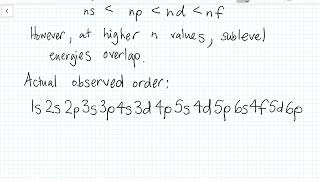 ns < np < nd < nf
However, at higher n values, sublevel
energies overlap.
Actual observed order:
1s 2s 2p 3s 3p 4s 3d 4p 5s 4d 5p 6s 4f 5d 6p